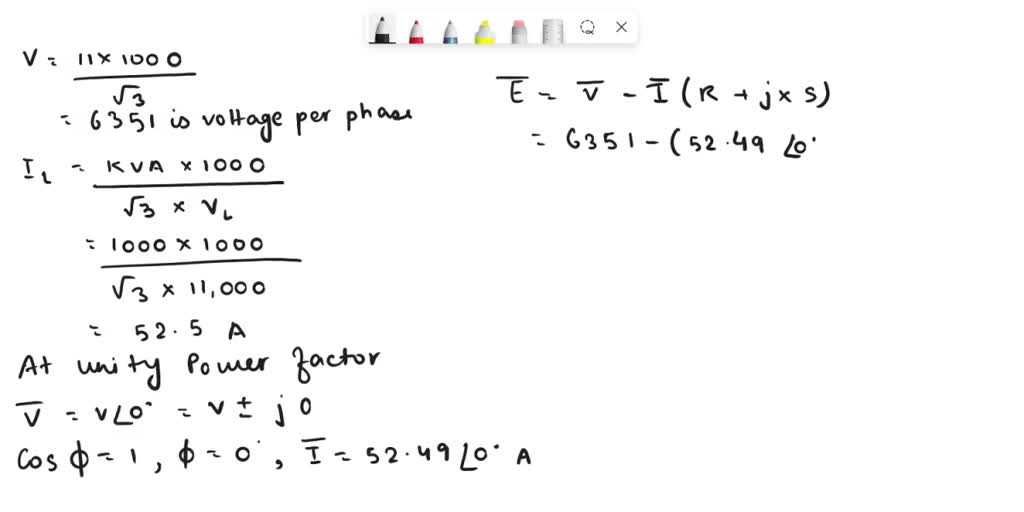 V = 11 x 1000 / √3
= 6351 is voltage per phase
I_L = KVA x 1000 / √3 x V_L
= 1000 x 1000 / √3 x 11,000
= 52.5 A
At unity Power factor
V̅ = V∠0° = V ± j0
cos ϕ = 1, ϕ = 0°, I̅ = 52.49 ∠0° A
E̅ = V̅ - I̅ (R + jxs)
= 6351 - (52.49 ∠0°